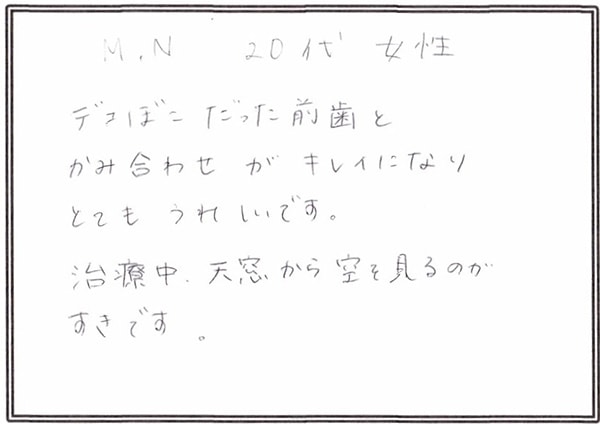 M.N 20代 女性
デコぼこだった前歯と
かみ合わせが キレイになり
とてもうれしいです。
治療中、天窓から空を見るのが
すきです。